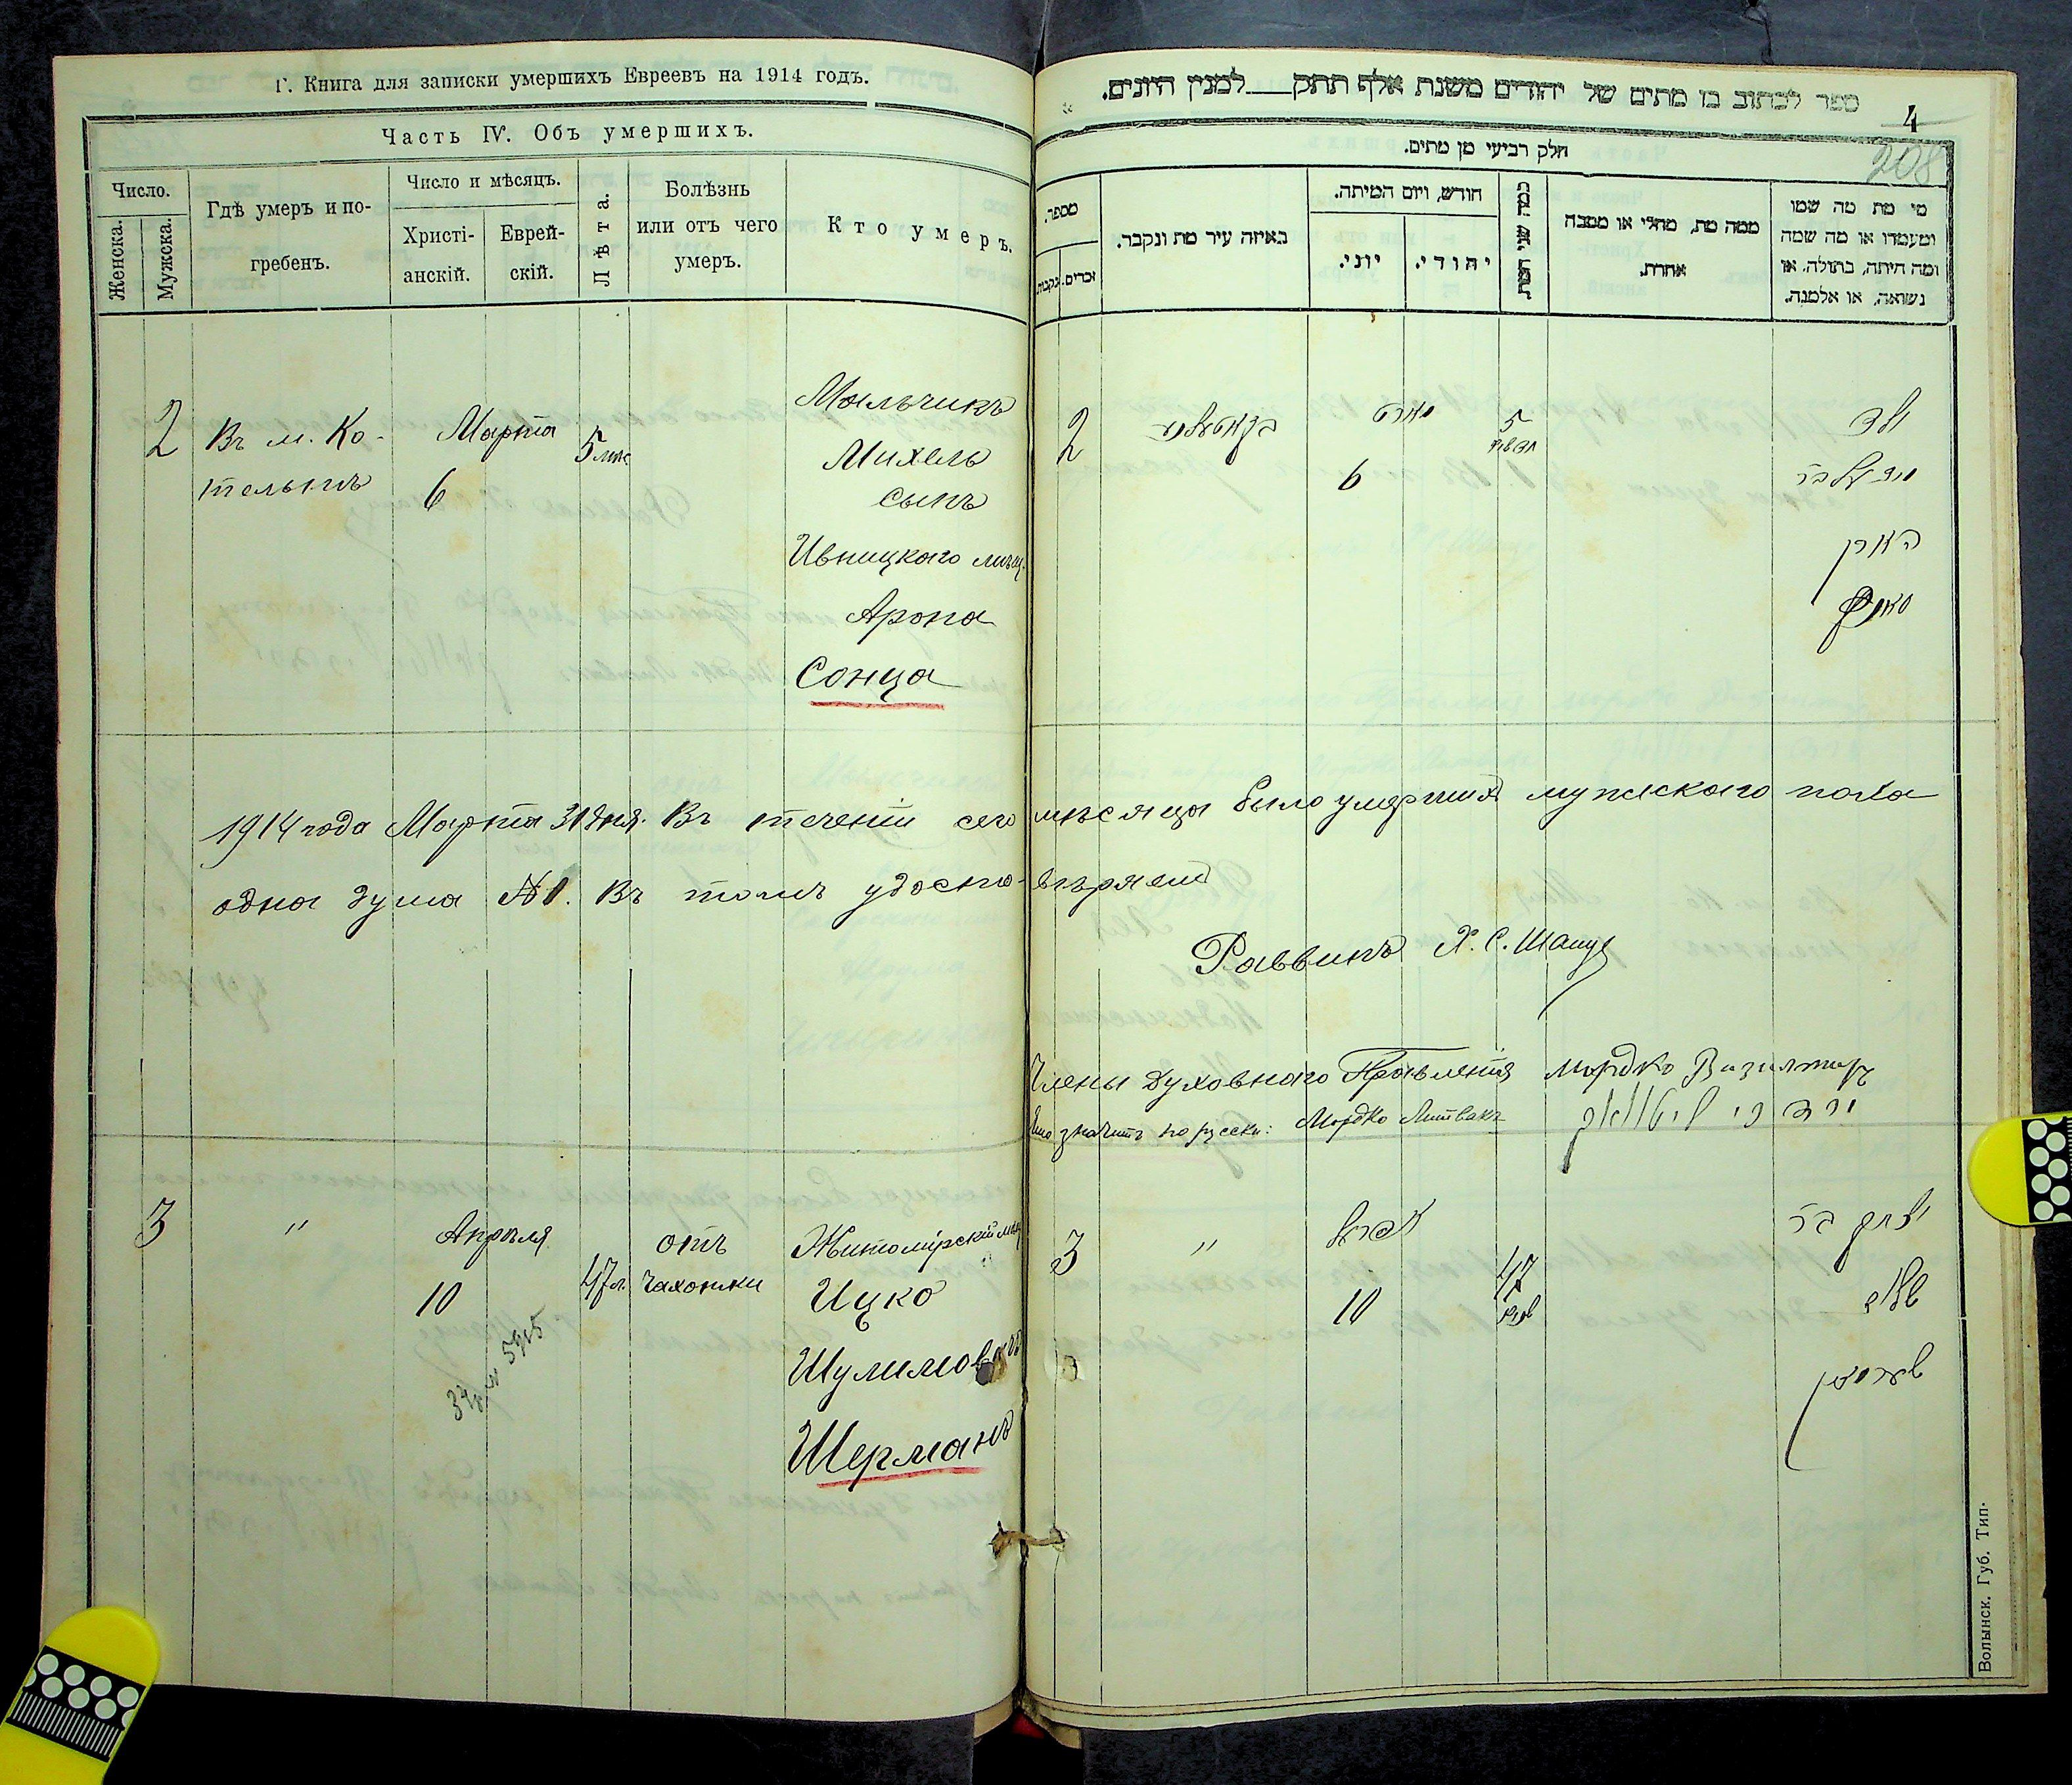 Г. Книга для записки умершихъ Евреевъ на 1914 годъ.
Часть IV. Объ умершихъ.
Число.
Женска.
Мужска.
Гдѣ умеръ и по-
гребенъ.
Число и мѣсяцъ.
Христі-
анскій.
Еврей-
скій.
Лѣта.
Болѣзнь
или отъ чего
умеръ.
Кто умеръ.
2
Въ м. Ко-
тельнѣ
Марта
6
5 мѣс
Мальчикъ
Михель
сынъ
Ивницкого мѣщ.
Арона
Сонца
3
"
Апрѣля
10
47 л.
отъ
чахотки
Житомірскій мѣщ
Ицко
Шулимовичъ
Шерманъ
ספר לכתוב בו מתים של יהודים משנת אלף תתק למנין היונים.
4
208
חלק רביעי מן מתים.
מספר.
נקבות
זכרים.
באיזה עיר מת ונקבר.
חודש, ויום המיתה.
יוני.
יהודי.
כמה שני המת
ממה מת, מחלי או מסבה
אחרת.
מי מת מה שמו
ומעמדו או מה שמה
ומה היתה, בתולה, או
נשואה, או אלמנה.
2
מארט
6
5
ילד
מיכעל בר
אהרן
1914 года Марта 31 дня. Въ теченіи сего мѣсяца было умершихъ мужскаго пола
одна душа № 1. Въ томъ удосто-вѣряемъ
Раввинъ Х. С. Шацъ
Члены Духовнаго Правленія Мордко
Ино значитъ по русски: Мордко Литвакъ
מרדכי ליטוואק
3
"
אפריל
10
47
יצחק בר
שולים
שערמאן
Волынск. Губ. Тип.